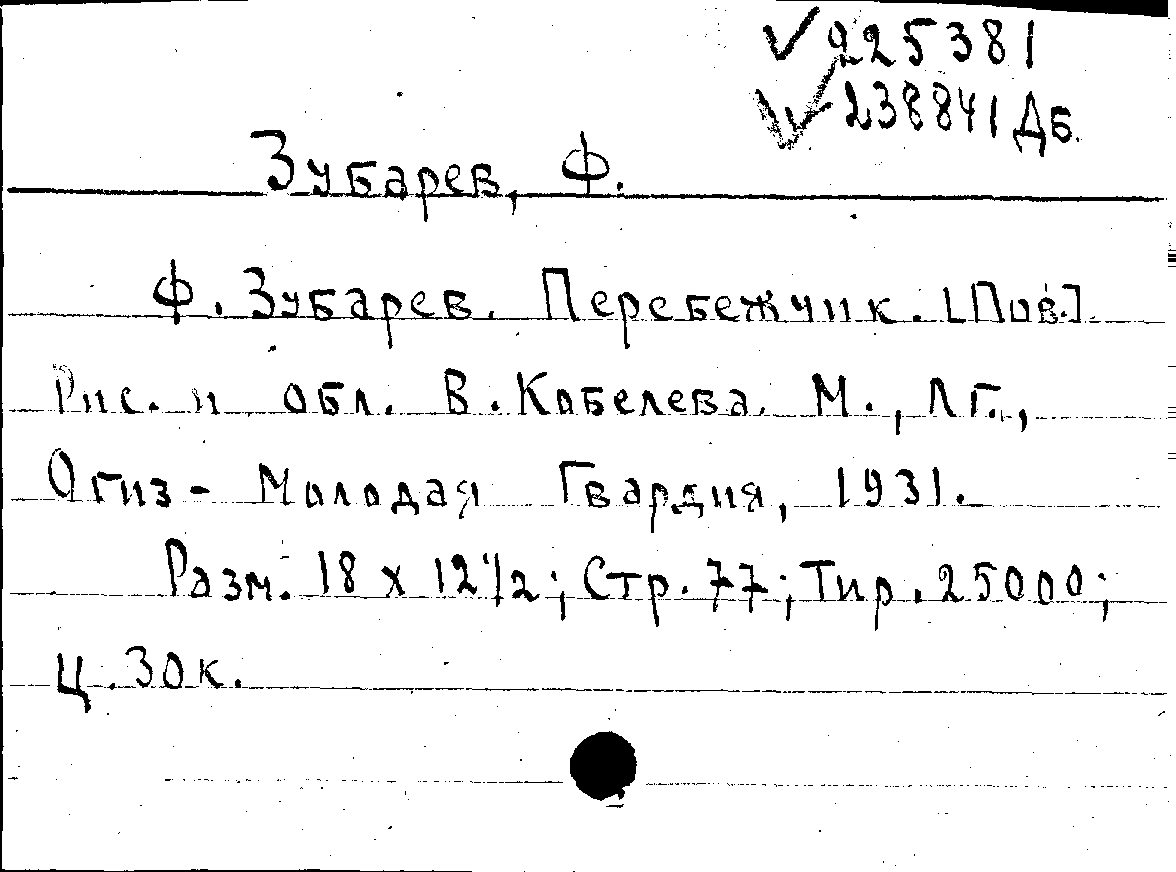 ✓225381
✓238841 Дб.
Зубарев, Ф.
Ф. Зубарев. Перебежчик. [Пов.].
Рис. и обл. В. Кобелева. М., Лг.,
Огиз - Молодая Гвардия, 1931.
Разм. 18 х 12 1/2; Стр. 77; Тир. 25000;
ц. 30 к.